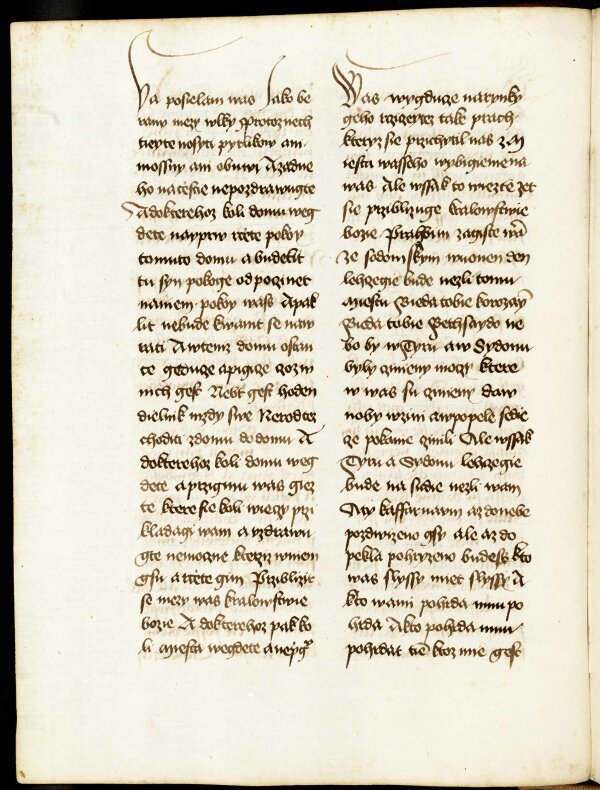 Ya posielam was Jako be
rany mezy wlky Protoz nech
tieyte nosyti pytlikow ani
mossny ani obuwi A zadne
ho na cestie nepozdrawugte
A dokterehoz koli domu weg
dete nayprw rcete pokoy
tomuto domu a budelit
tu syn pokoge odpoczinet
na niem pokoy wass A pak
lit nebude k wamt se naw
rati A w temz domu ostan
te geduze a pigicze coz w
nich gest Nebt gest hoden
dielnik mzdy swe Nerodtez
choditi z domu do domu A
dokterehoz koli domu weg
dete a przigmu was giez
te ktere sie koli wieczy przi
kladagi wam a uzdrawu
gte nemoczne kterziz w niem
gsu a rcete gim Prziblizit
se mezy was kralowstwie
bozie A dokterehoz pak ko
li miesta wegdete a neprzig
Was wygducze na rynky
geho rczetez take prach
kteryz sie przichytil nas z M
iesta wasseho wybigiemena
was Ale wssak to wiezte zet
sie prziblizuge kralowstwie
bozie Prawim zagiste wam
Ze sodomskym w uonen den
lehczegie bude nezli tomu
miestu Bieda tobie korozaym
Bieda tobie Bethsaydo ne
bo by w Tyru a w Sydonu
byly czineny moczy ktere
w was su czineny daw
noby w zini a w popele sedie
cze pokanie czinili Ale wssak
Tyru a Sydonu lehczegie
bude na sudie nezli wam
A ty kaffarnaum az do nebe
pozdwizeno gsy ale az do
pekla pohrzyzeno budess kto
was slyssy mnet slyssy A
kto wami pohrda mnu po
hrda A kto pohrda mnu
pohrdat tiem ktoz mie gest